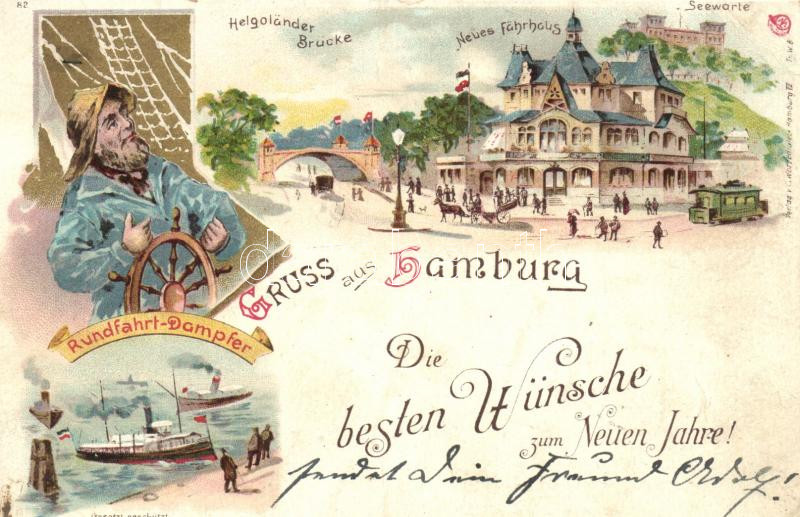 82
Helgoländer
Brücke
Neues Fährhaus
Seewarte
Gruss aus Hamburg
Rundfahrt-Dampfer
Die
besten Wünsche
zum Neuen Jahre!
sendet Dein Freund Adolf!
Gesetzl. geschützt